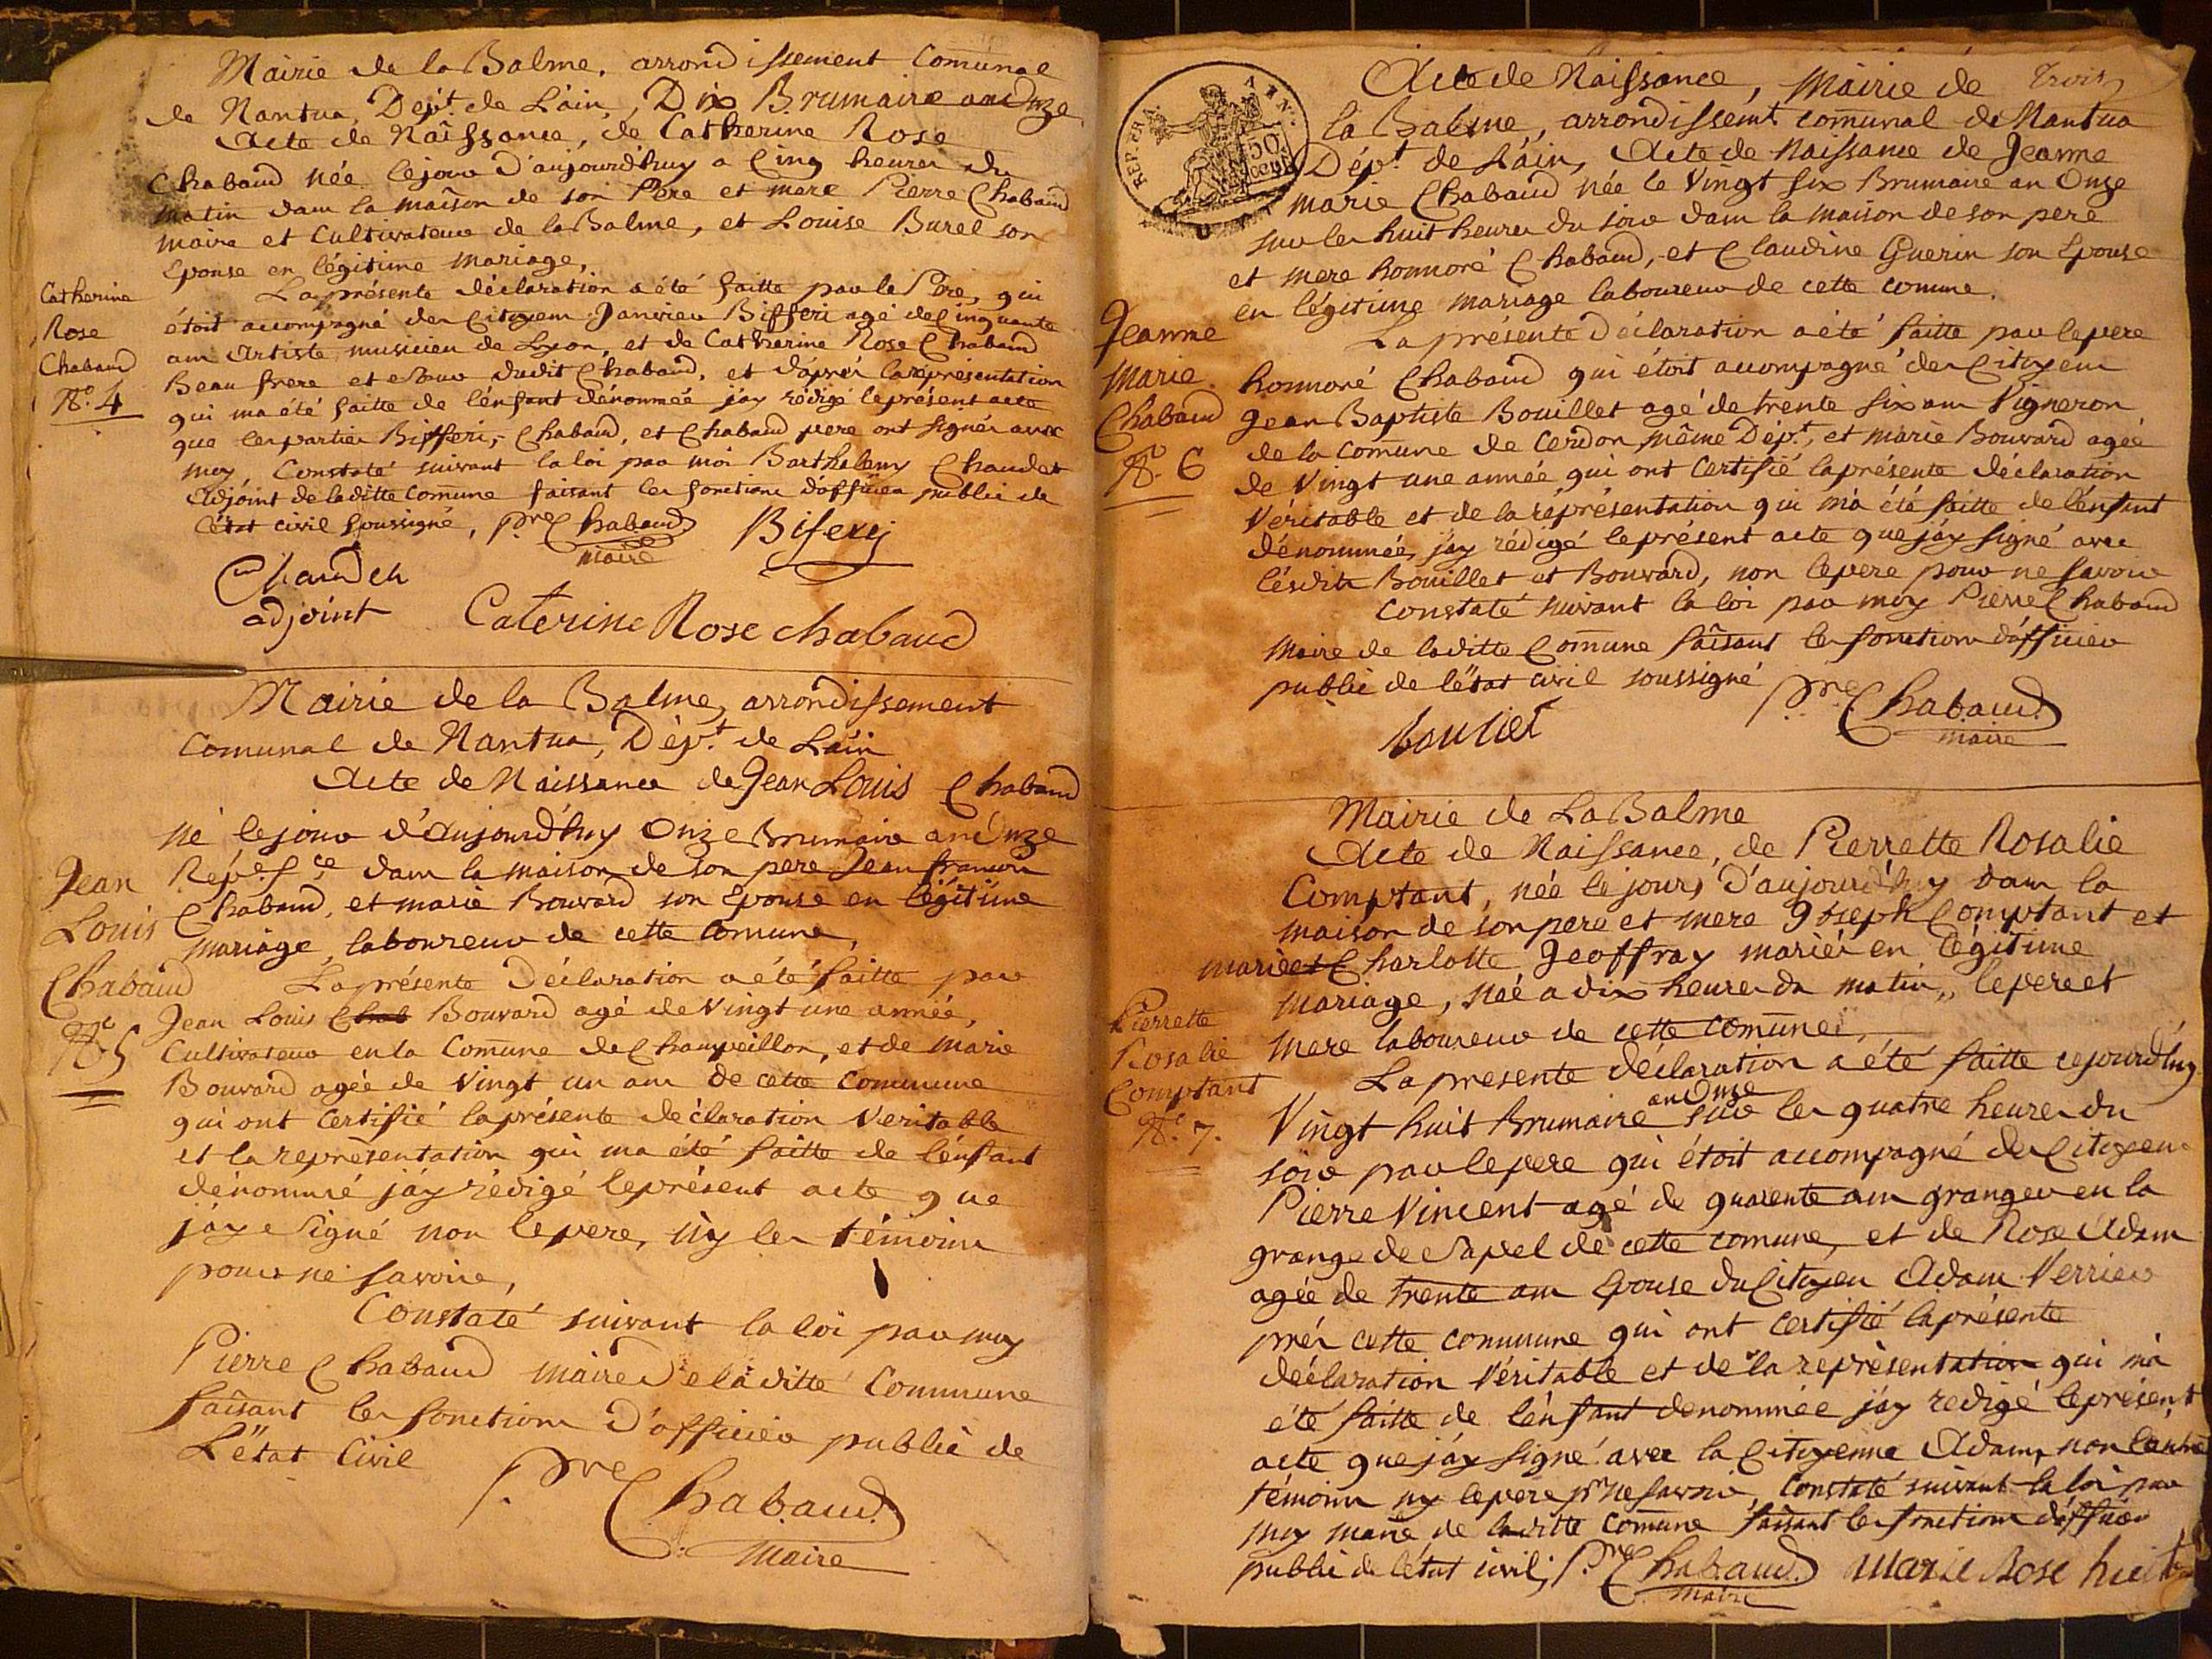 Mairie de la Balme, arrondissement Comunal
de Nantua, Dep.t de L'ain, Dix Brumaire an Onze
Acte de Naissance, de Catherine Rose
Chabaud née le jour d'aujourd'huy a Cinq heures du
matin dans la maison de son Pere et mere Pierre Chabaud
maire et Cultivateur de la Balme, et Louise Burel son
Epouse en légitime mariage,
La présente déclaration a été faitte par le Pere, qui
étoit accompagné des Citoyens Janvier Bifferi agé de Cinquante
ans Artiste musicien de Lyon, et de Catherine Rose Chabaud
Beau frere et soeur dudit Chabaud, et d'après la représentation
qui ma été faitte de l'énfant dénommée jáy rédigé le présent acte
que les parties Bifferi, Chabaud, et Chabaud pere ont signés avec
moy, Constaté suivant la loi par moi Barthelemy Chaudet
Adjoint de laditte Comune faisant les fonctions d'officier public de
l'état civil soussigné, P.re Chabaud Biferij
maire
Chaudet
adjoint Caterine Rose chabaud
Catherine
Rose
Chabaud
N.o 4
Mairie de la Balme, arrondissement
Comunal de Nantua, Dép.t de L'ain
Acte de Naissance de Jean Louis Chabaud
né le jour d'Aujourd'huy Onze Brumaire an Onze
Rép. f.se dans la maison de son pere Jean françois
Chabaud, et marie Bouvard son Epouse en légitime
mariage, laboureur de cette Comune,
La présente Déclaration a été faitte par
Jean Louis Chab Bouvard agé de Vingt une année,
Cultivateur en la Comune de Champeillon, et de marie
Bouvard agée de Vingt un ans de cette Commune
qui ont Certifié la présente déclaration Veritable
et la représentation qui ma été faitte de l'énfant
dénommé jáy rédigé le présent acte que
jáye Signé non le pere, ny les témoins
pour ne savoir,
Constaté suivant la loi par moy
Pierre Chabaud maire de la ditte Commune
faisant les fonctions d'officier public de
L'état Civil P.re Chabaud
Maire
Jean
Louis
Chabaud
N.o 5
Acte de Naissance, Mairie de Trois
la Balme, arrondissemt comunal de Nantua
Dép.t de L'ain, Acte de Naissance de Jeanne
marie Chabaud née le Vingt six Brumaire an Onze
sur les huit heures du soir dans la maison de son pere
et mere honnoré Chabaud, et Claudine Guerin son Epouse
en légitime mariage laboureur de cette comune.
La présente Déclaration a été faitte par le pere
honnoré Chabaud qui étoit accompagné des Citoyens
Jean Baptiste Bouillet agé de trente six ans Vigneron
de la Comune de Cerdon, même Dép.t, et marie Bouvard agée
de Vingt une année qui ont Certifié la présente déclaration
Véritable et de la représentation qui m'a été faitte de l'énfant
dénommée, jáy rédigé le présent acte que jáy signé avec
lésdits Bouillet et Bouvard, non le pere pour ne savoir
Constaté suivant la loi par moy Pierre Chabaud
maire de laditte Comune faisant les fonctions d'officier
public de l'état civil soussigné P.re Chabaud
bouliet maire
Jeanne
Marie
Chabaud
N.o 6
REP. FRA. 50
Mairie de La Balme
Acte de Naissance, de Pierrette Rosalie
Comptant, née le jours d'aujourd'huy dans la
maison de son pere et mere Joseph Comptant et
marie et Charlotte Jeoffray mariés en légitime
mariage, née a dix heures du matin,, le pere et
mere laboureur de cette comune,
La presente déclaration a été faitte cejourd'huy
an Onze
Vingt huit Brumaire sur les quatre heures du
soir par le pere qui étoit accompagné des Citoyens
Pierre Vincent agé de quarente ans granger en la
grange de Sapel de cette comune, et de Rose Adam
agée de trente ans Epouse du Citoyen Adam Verrier
prés cette commune qui ont certifié la présente
déclaration Véritable et de la représentation qui m'a
été faitte de l'énfant denommée jáy redigé le présent
acte que jáy signé avec la Citoyenne Adam, non l'autre
témoin ny le pere pr ne savoir, Constaté suivant la loi par
moy maire de laditte Comune faisant les fonctions d'officier
public de l'état civil, P.re Chabaud Marie Rose
maire
Pierrette
Rosalie
Comptant
N.o 7.